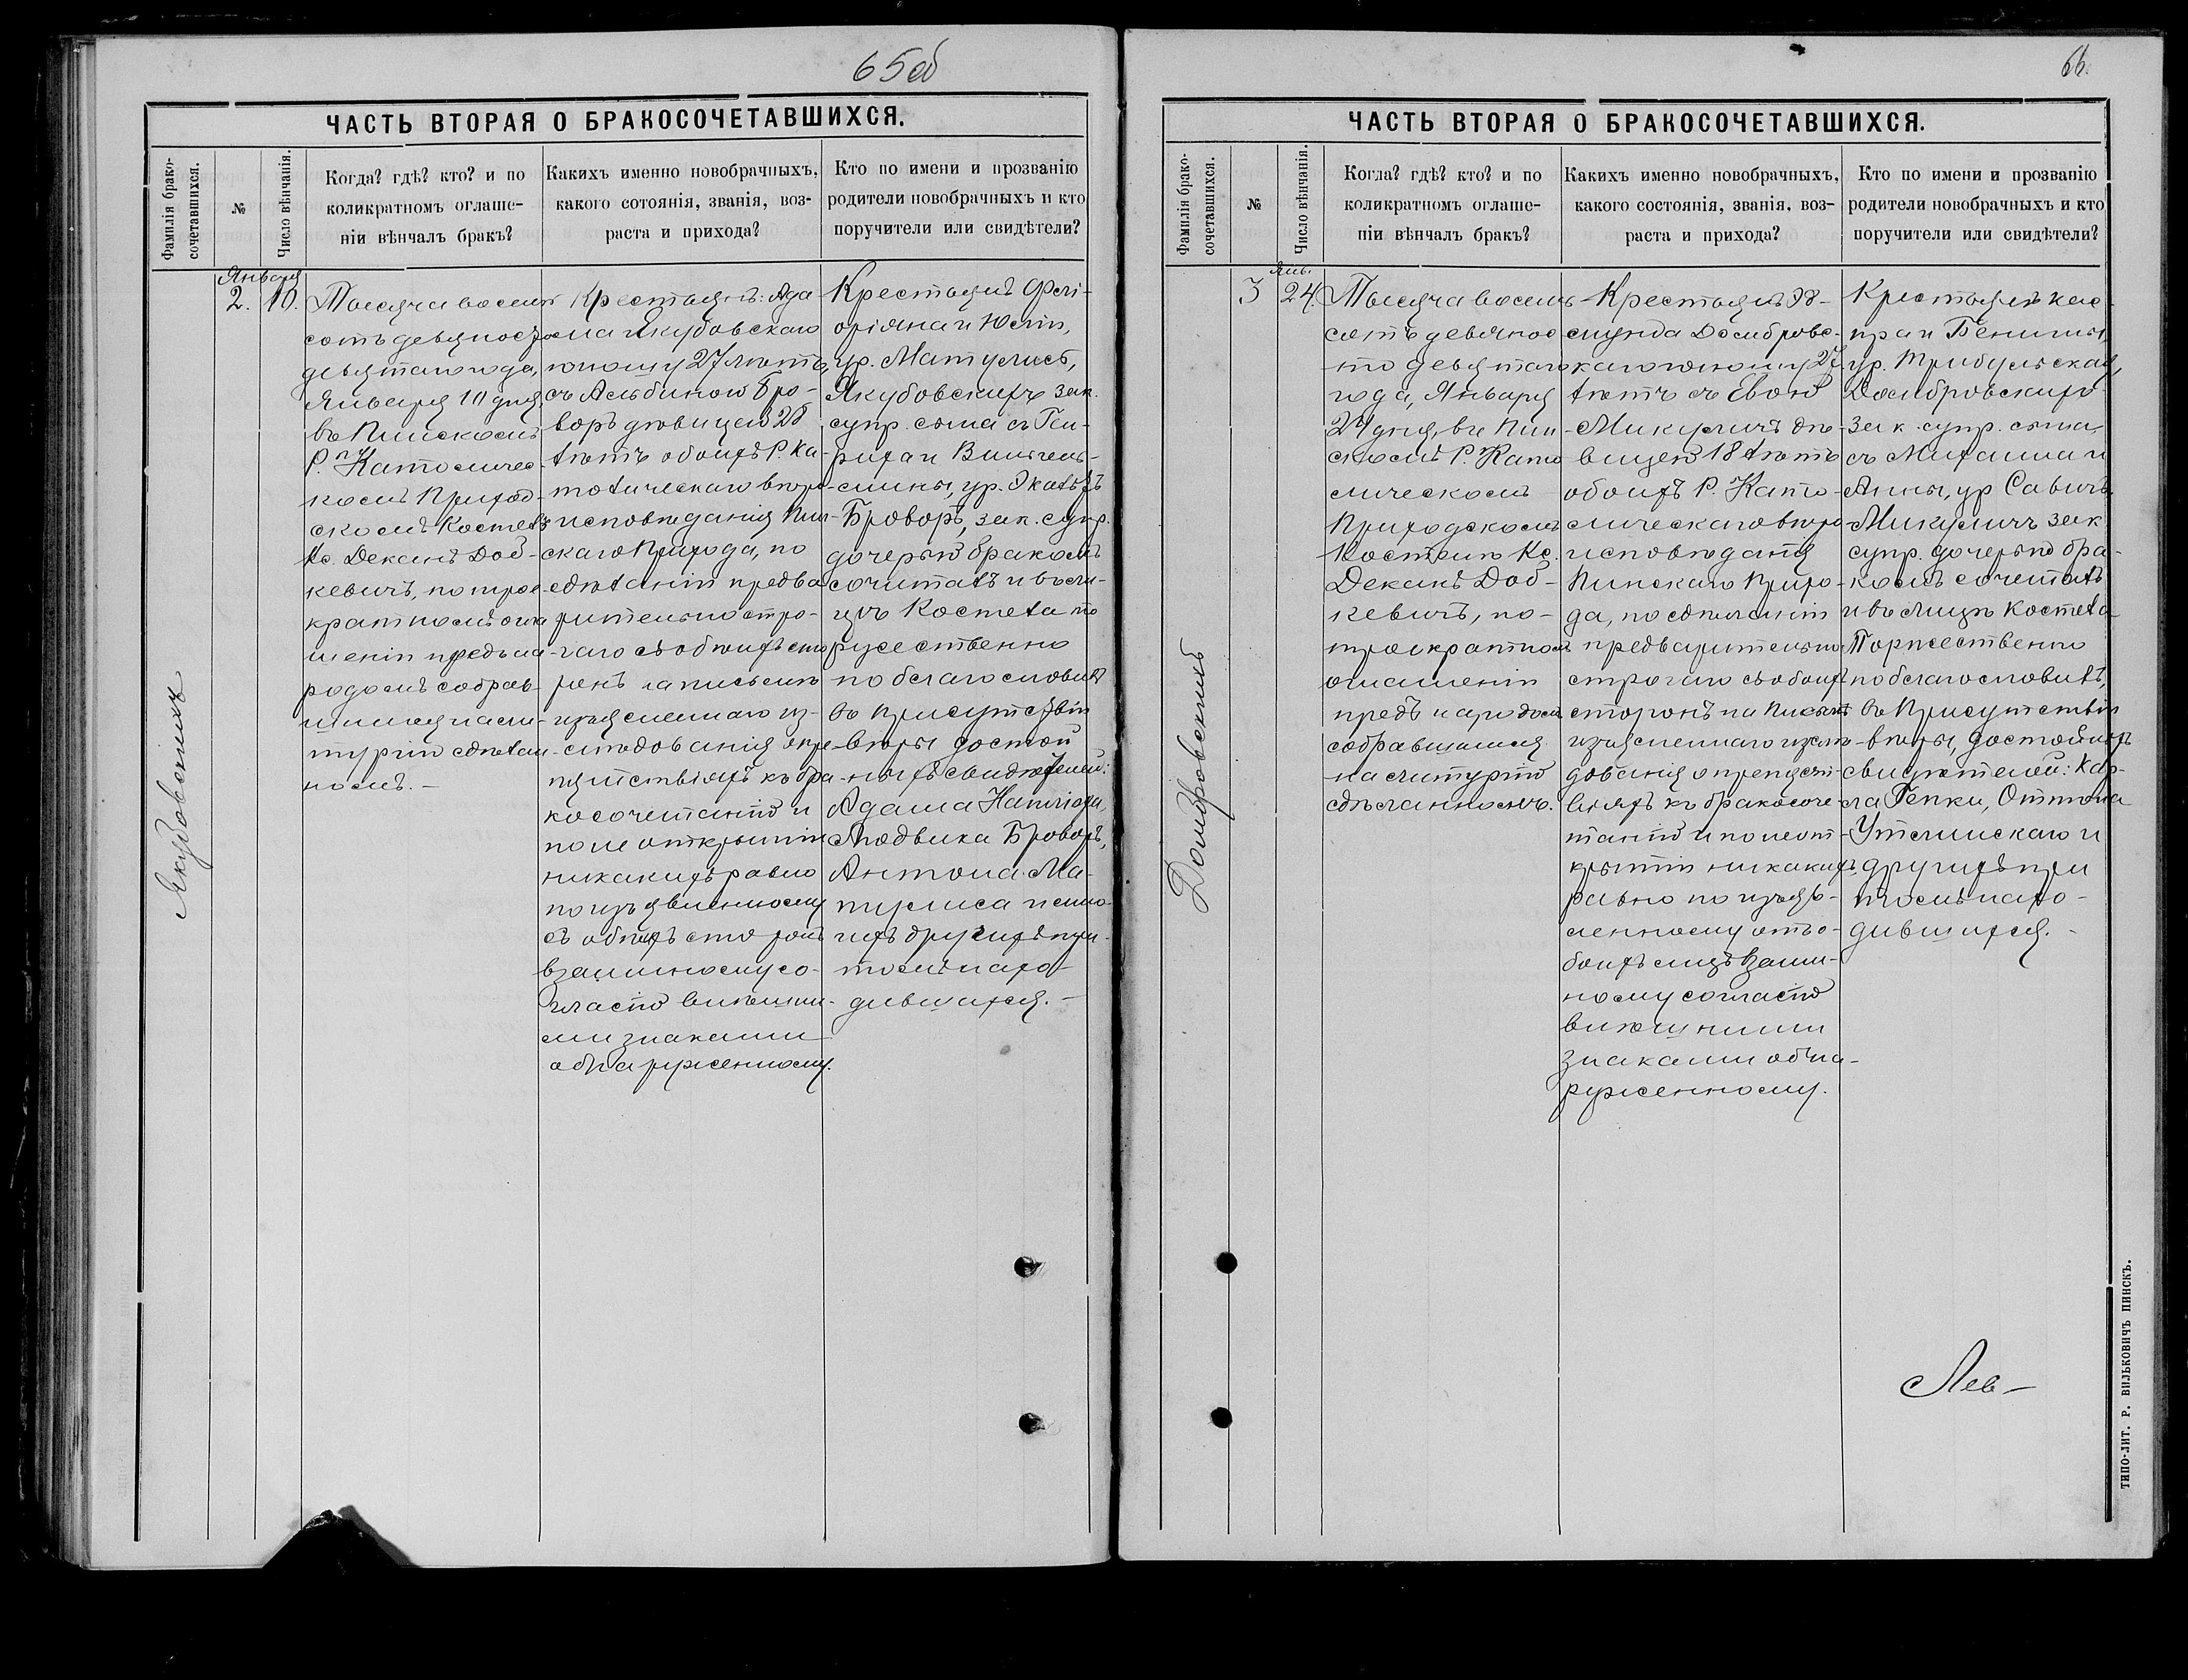 65об
ЧАСТЬ ВТОРАЯ О БРАКОСОЧЕТАВШИХСЯ.
Фамилія брако-
сочетавшихся.
№
Число вѣнчанія.
Когда? гдѣ? кто? и по
коликратномъ оглаше-
ніи вѣнчалъ бракъ?
Какихъ именно новобрачныхъ,
какого сотоянія, званія, воз-
раста и прихода?
Кто по имени и прозванію
родители новобрачныхъ и кто
поручители или свидѣтели?
Якубовскихъ
Января
2. 10.
Тысяча восемь
сотъ девяносто
девятаго года,
Января 10 дня,
въ Пинскомъ
Р. Католичес-
комъ Приход-
скомъ Костелѣ
Кс. Деканъ Доб-
кевичъ, по трое-
кратномъ огла
шеніи предъ на
родомъ собрав-
шимся на ли-
тургію сдѣлан
номъ. —
Крестьянъ: Ада
ма Якубовскаго
юношу 27 лѣтъ,
съ Альбиною Бро-
воръ дѣвицею 28
лѣтъ обоихъ Р. Ка-
толическаго вѣро-
исповѣданія Пин-
скаго Прихода, по
сдѣланіи предва
рительно стро-
гаго съ обоихъ сто
ронъ на письмѣ
изъясненнаго из-
слѣдованія о пре-
пятствіяхъ къ бра-
косочетанію и
по не открытіи
никакихъ равно
по изъявленному
съ обоихъ сторонъ
взаимному со-
гласію внѣшни-
ми знаками
обнаруженному.
Крестьянъ Флі-
оріяна и Юстіи,
ур. Матулисъ,
Якубовскихъ зак.
супр. сына съ Ген-
риха и Вильгель-
мины, ур. Экальтъ
Броворъ, зак. супр.
дочерью бракомъ
сочиталъ и въ ли-
цѣ Костела то
ржественно
поблагословилъ
въ присутствіи
вѣры достой
ныхъ свидѣтелей:
Адама
Людвика Броворъ,
Антона Ма-
тулиса и мно-
гихъ другихъ при
томъ нахо-
дившихся. —
66.
ЧАСТЬ ВТОРАЯ О БРАКОСОЧЕТАВШИХСЯ.
Фамилія брако-
сочетавшихся.
№
Число вѣнчанія.
Когда? гдѣ? кто? и по
коликратномъ оглаше-
ніи вѣнчалъ бракъ?
Какихъ именно новобрачныхъ,
какого состоянія, званія, воз-
раста и прихода?
Кто по имени и прозванію
родители новобрачныхъ и кто
поручители или свидѣтели?
Домбровскихъ
Янв.
3 24.
Тысяча восемь
сотъ девянос
то девятаго
года, Января
24 дня, въ Пин
скомъ Р. Като
лическомъ
Приходскомъ
Костелѣ Кс.
Деканъ Доб-
кевичъ, по-
троекратномъ
оглашеніи
предъ народомъ
собравшимся
на литургію
сдѣланномъ.
Крестьянъ Эд-
мунда Домбровс-
каго юношу 27
лѣтъ съ Евою
Микуличъ дѣ-
вицею 18 лѣтъ
обоихъ Р. Като-
лическаго вѣро
исповѣданія
Пинскаго Прихо-
да, по сдѣланіи
предварительно
строгаго съ обоихъ
сторонъ на письмѣ
изъясненнаго изслѣ-
дованія о препятст-
віяхъ къ бракосоче-
танію и по неот-
крытіи никакихъ
равно по изъяв-
ленному отъ о-
боихъ лицъ взаим-
ному согласію
внѣшними
знаками обна-
руженному.
Крестьянъ Кас
пра и Бенигны,
ур. Трибульская,
Домбровскихъ
зак. супр. сына,
съ Михаила и
Анны, ур Савичъ
Микуличъ зак
супр. дочерью бра-
комъ сочеталъ
и въ лицѣ Костела
Торжественно
поблагословилъ,
въ присутствіи
вѣры, достойныхъ
свидѣтелей: Кар-
ла Гепки, Оттона
и
другихъ при
томъ нахо-
дившихся. -
Лев—
ТИПО-ЛИТ. Р. ВИЛЬКОВИЧЪ ПИНСКЪ.